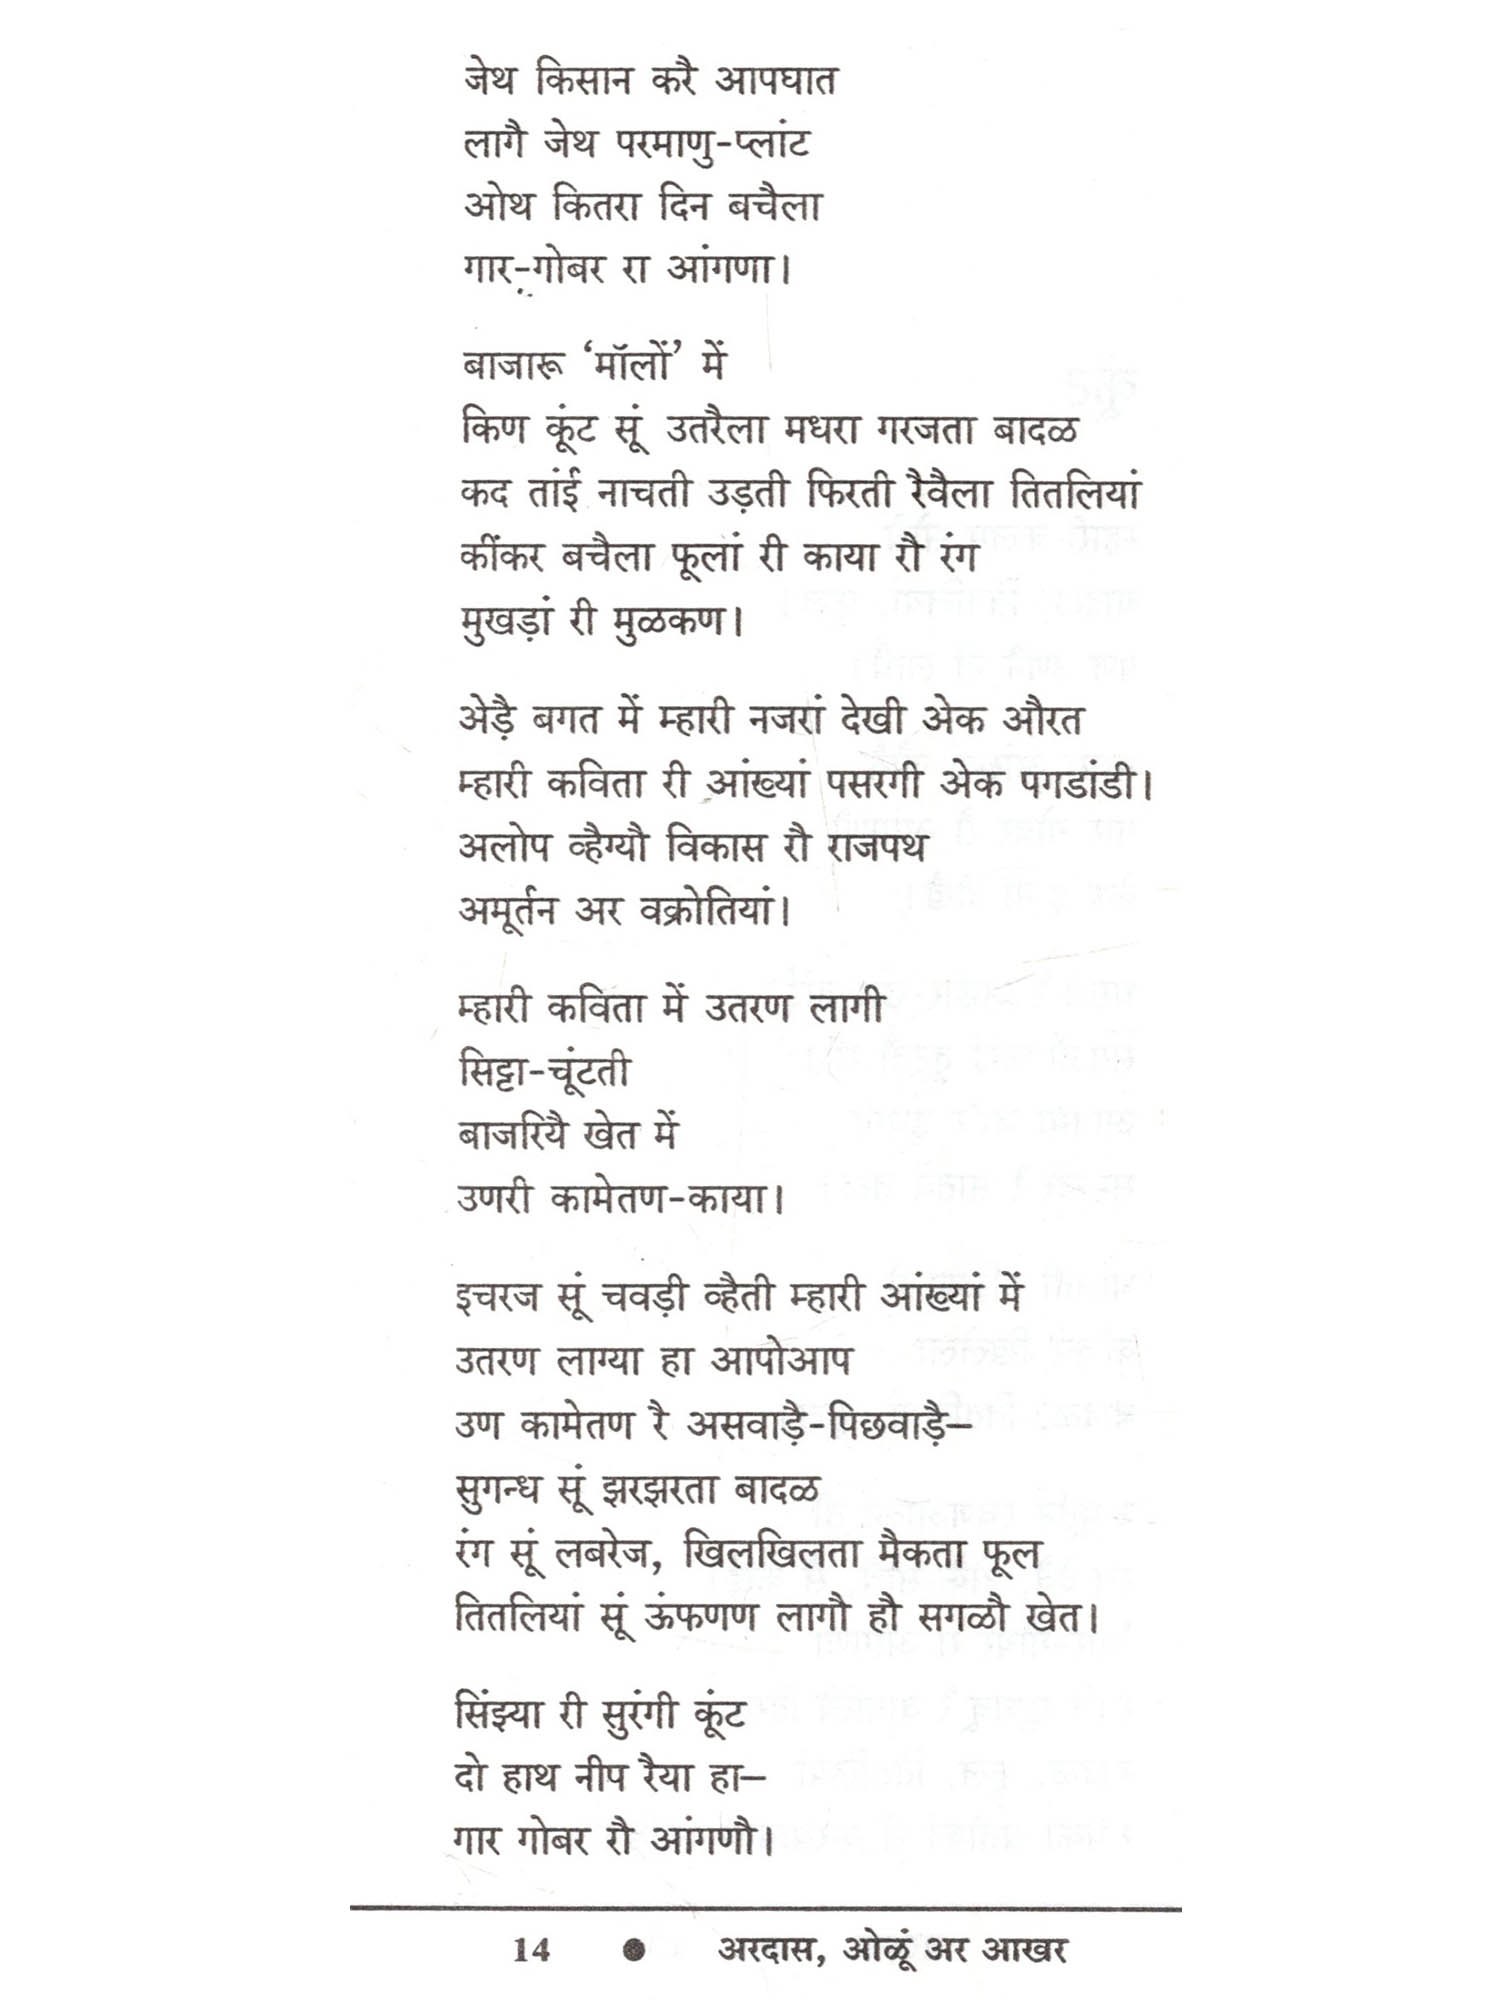 जेथ किसान करै आपघात
लागै जेथ परमाणु-प्लांट
ओथ कितरा दिन बचैला
गार-गोबर रा आंगणा।
बाजारू ‘मॉलों’ में
किण कूंट सूं उतरैला मधरा गरजता बादळ
कद तांई नाचती उड़ती फिरती रैवैला तितलियां
कींकर बचैला फूलां री काया रौ रंग
मुखड़ां री मुळकण।
अेड़ै बगत में म्हारी नजरां देखी अेक औरत
म्हारी कविता री आंख्यां पसरगी अेक पगडांडी।
अलोप व्हैग्यौ विकास रौ राजपथ
अमूर्तन अर वक्रोतियां।
म्हारी कविता में उतरण लागी
सिट्टा-चूंटती
बाजरियै खेत में
उणरी कामेतण-काया।
इचरज सूं चवड़ी व्हैती म्हारी आंख्यां में
उतरण लाग्या हा आपोआप
उण कामेतण रै असवाड़ै-पिछवाड़ै–
सुगन्ध सूं झरझरता बादळ
रंग सूं लबरेज, खिलखिलता मैकता फूल
तितलियां सूं ऊंफणण लागौ हौ सगळौ खेत।
सिंझ्या री सुरंगी कूंट
दो हाथ नीप रैया हा–
गार गोबर रौ आंगणौ।
14 ● अरदास, ओळूं अर आखर